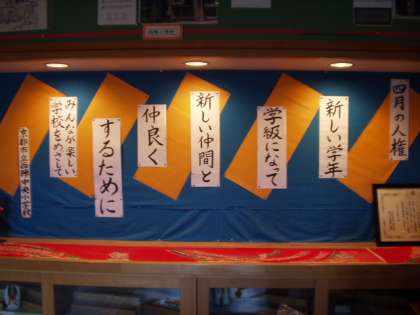 四月の人権
新しい学年
学級になって
新しい仲間と
仲良く
するために
みんなが楽しい
学校をめざして
京都市立西陣中央小学校